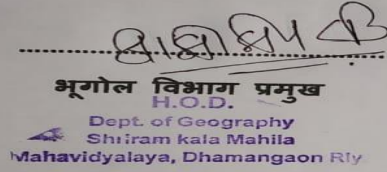 भूगोल विभाग प्रमुख
H.O.D.
Dept. of Geography
Shriram kala Mahila
Mahavidyalaya, Dhamangaon Rly